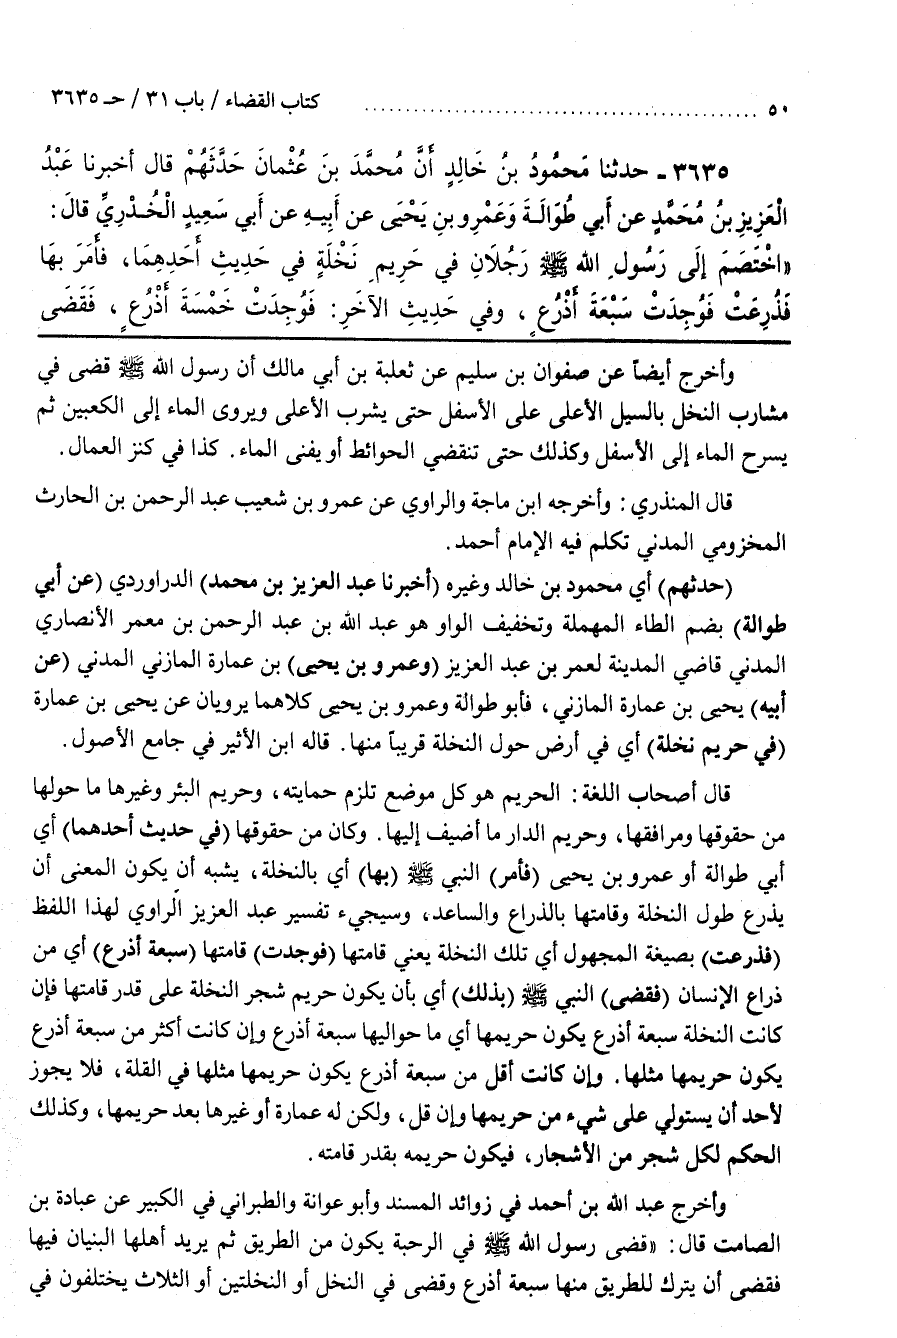 ٥٠ ........................ كتاب القضاء / باب ٣١ / حـ ٣٦٣٥
٣٦٣٥ ـ حدثنا مَحمُودُ بنُ خَالِدٍ أَنَّ مُحمَّدَ بنَ عُثْمانَ حَدَّثَهُمْ قال أخبرنا عَبْدُ
الْعَزِيزِ بنُ مُحَمَّدٍ عن أَبي طُوَالَةَ وَعَمْرِو بنِ يَحْيَى عن أَبِيهِ عن أَبي سَعِيدٍ الْخُدْرِيِّ قالَ:
«اخْتَصَمَ إِلَى رَسُولِ الله ﷺ رَجُلَانِ في حَرِيمِ نَخْلَةٍ في حَدِيثِ أَحَدِهِمَا، فأَمَرَ بهَا
فَذُرِعَتْ فَوُجِدَتْ سَبْعَةَ أَذْرُعٍ، وفي حَدِيثِ الآخَرِ: فَوُجِدَتْ خَمْسَةَ أَذْرُعٍ، فَقَضَى
وأخرج أيضاً عن صفوان بن سليم عن ثعلبة بن أبي مالك أن رسول الله ﷺ قضى في
مشارب النخل بالسيل الأعلى على الأسفل حتى يشرب الأعلى ويروى الماء إلى الكعبين ثم
يسرح الماء إلى الأسفل وكذلك حتى تنقضي الحوائط أو يفنى الماء. كذا في كنز العمال.
قال المنذري: وأخرجه ابن ماجة والراوي عن عمرو بن شعيب عبد الرحمن بن الحارث
المخزومي المدني تكلم فيه الإمام أحمد.
(حدثهم) أي محمود بن خالد وغيره (أخبرنا عبد العزيز بن محمد) الدراوردي (عن أبي
طوالة) بضم الطاء المهملة وتخفيف الواو هو عبد الله بن عبد الرحمن بن معمر الأنصاري
المدني قاضي المدينة لعمر بن عبد العزيز (وعمرو بن يحيى) بن عمارة المازني المدني (عن
أبيه) يحيى بن عمارة المازني، فأبو طوالة وعمرو بن يحيى كلاهما يرويان عن يحيى بن عمارة
(في حريم نخلة) أي في أرض حول النخلة قريباً منها. قاله ابن الأثير في جامع الأصول.
قال أصحاب اللغة: الحريم هو كل موضع تلزم حمايته، وحريم البئر وغيرها ما حولها
من حقوقها ومرافقها، وحريم الدار ما أضيف إليها. وكان من حقوقها (في حديث أحدهما) أي
أبي طوالة أو عمرو بن يحيى (فأمر) النبي ﷺ (بها) أي بالنخلة، يشبه أن يكون المعنى أن
يذرع طول النخلة وقامتها بالذراع والساعد، وسيجيء تفسير عبد العزيز الراوي لهذا اللفظ
(فذرعت) بصيغة المجهول أي تلك النخلة يعني قامتها (فوجدت) قامتها (سبعة أذرع) أي من
ذراع الإنسان (فقضى) النبي ﷺ (بذلك) أي بأن يكون حريم شجر النخلة على قدر قامتها فإن
كانت النخلة سبعة أذرع يكون حريمها أي ما حواليها سبعة أذرع وإن كانت أكثر من سبعة أذرع
يكون حريمها مثلها. وإن كانت أقل من سبعة أذرع يكون حريمها مثلها في القلة، فلا يجوز
لأحد أن يستولي على شيء من حريمها وإن قل، ولكن له عمارة أو غيرها بعد حريمها، وكذلك
الحكم لكل شجر من الأشجار، فيكون حريمه بقدر قامته.
وأخرج عبد الله بن أحمد في زوائد المسند وأبو عوانة والطبراني في الكبير عن عبادة بن
الصامت قال: «قضى رسول الله ﷺ في الرحبة يكون من الطريق ثم يريد أهلها البنيان فيها
فقضى أن يترك للطريق منها سبعة أذرع وقضى في النخل أو النخلتين أو الثلاث يختلفون في